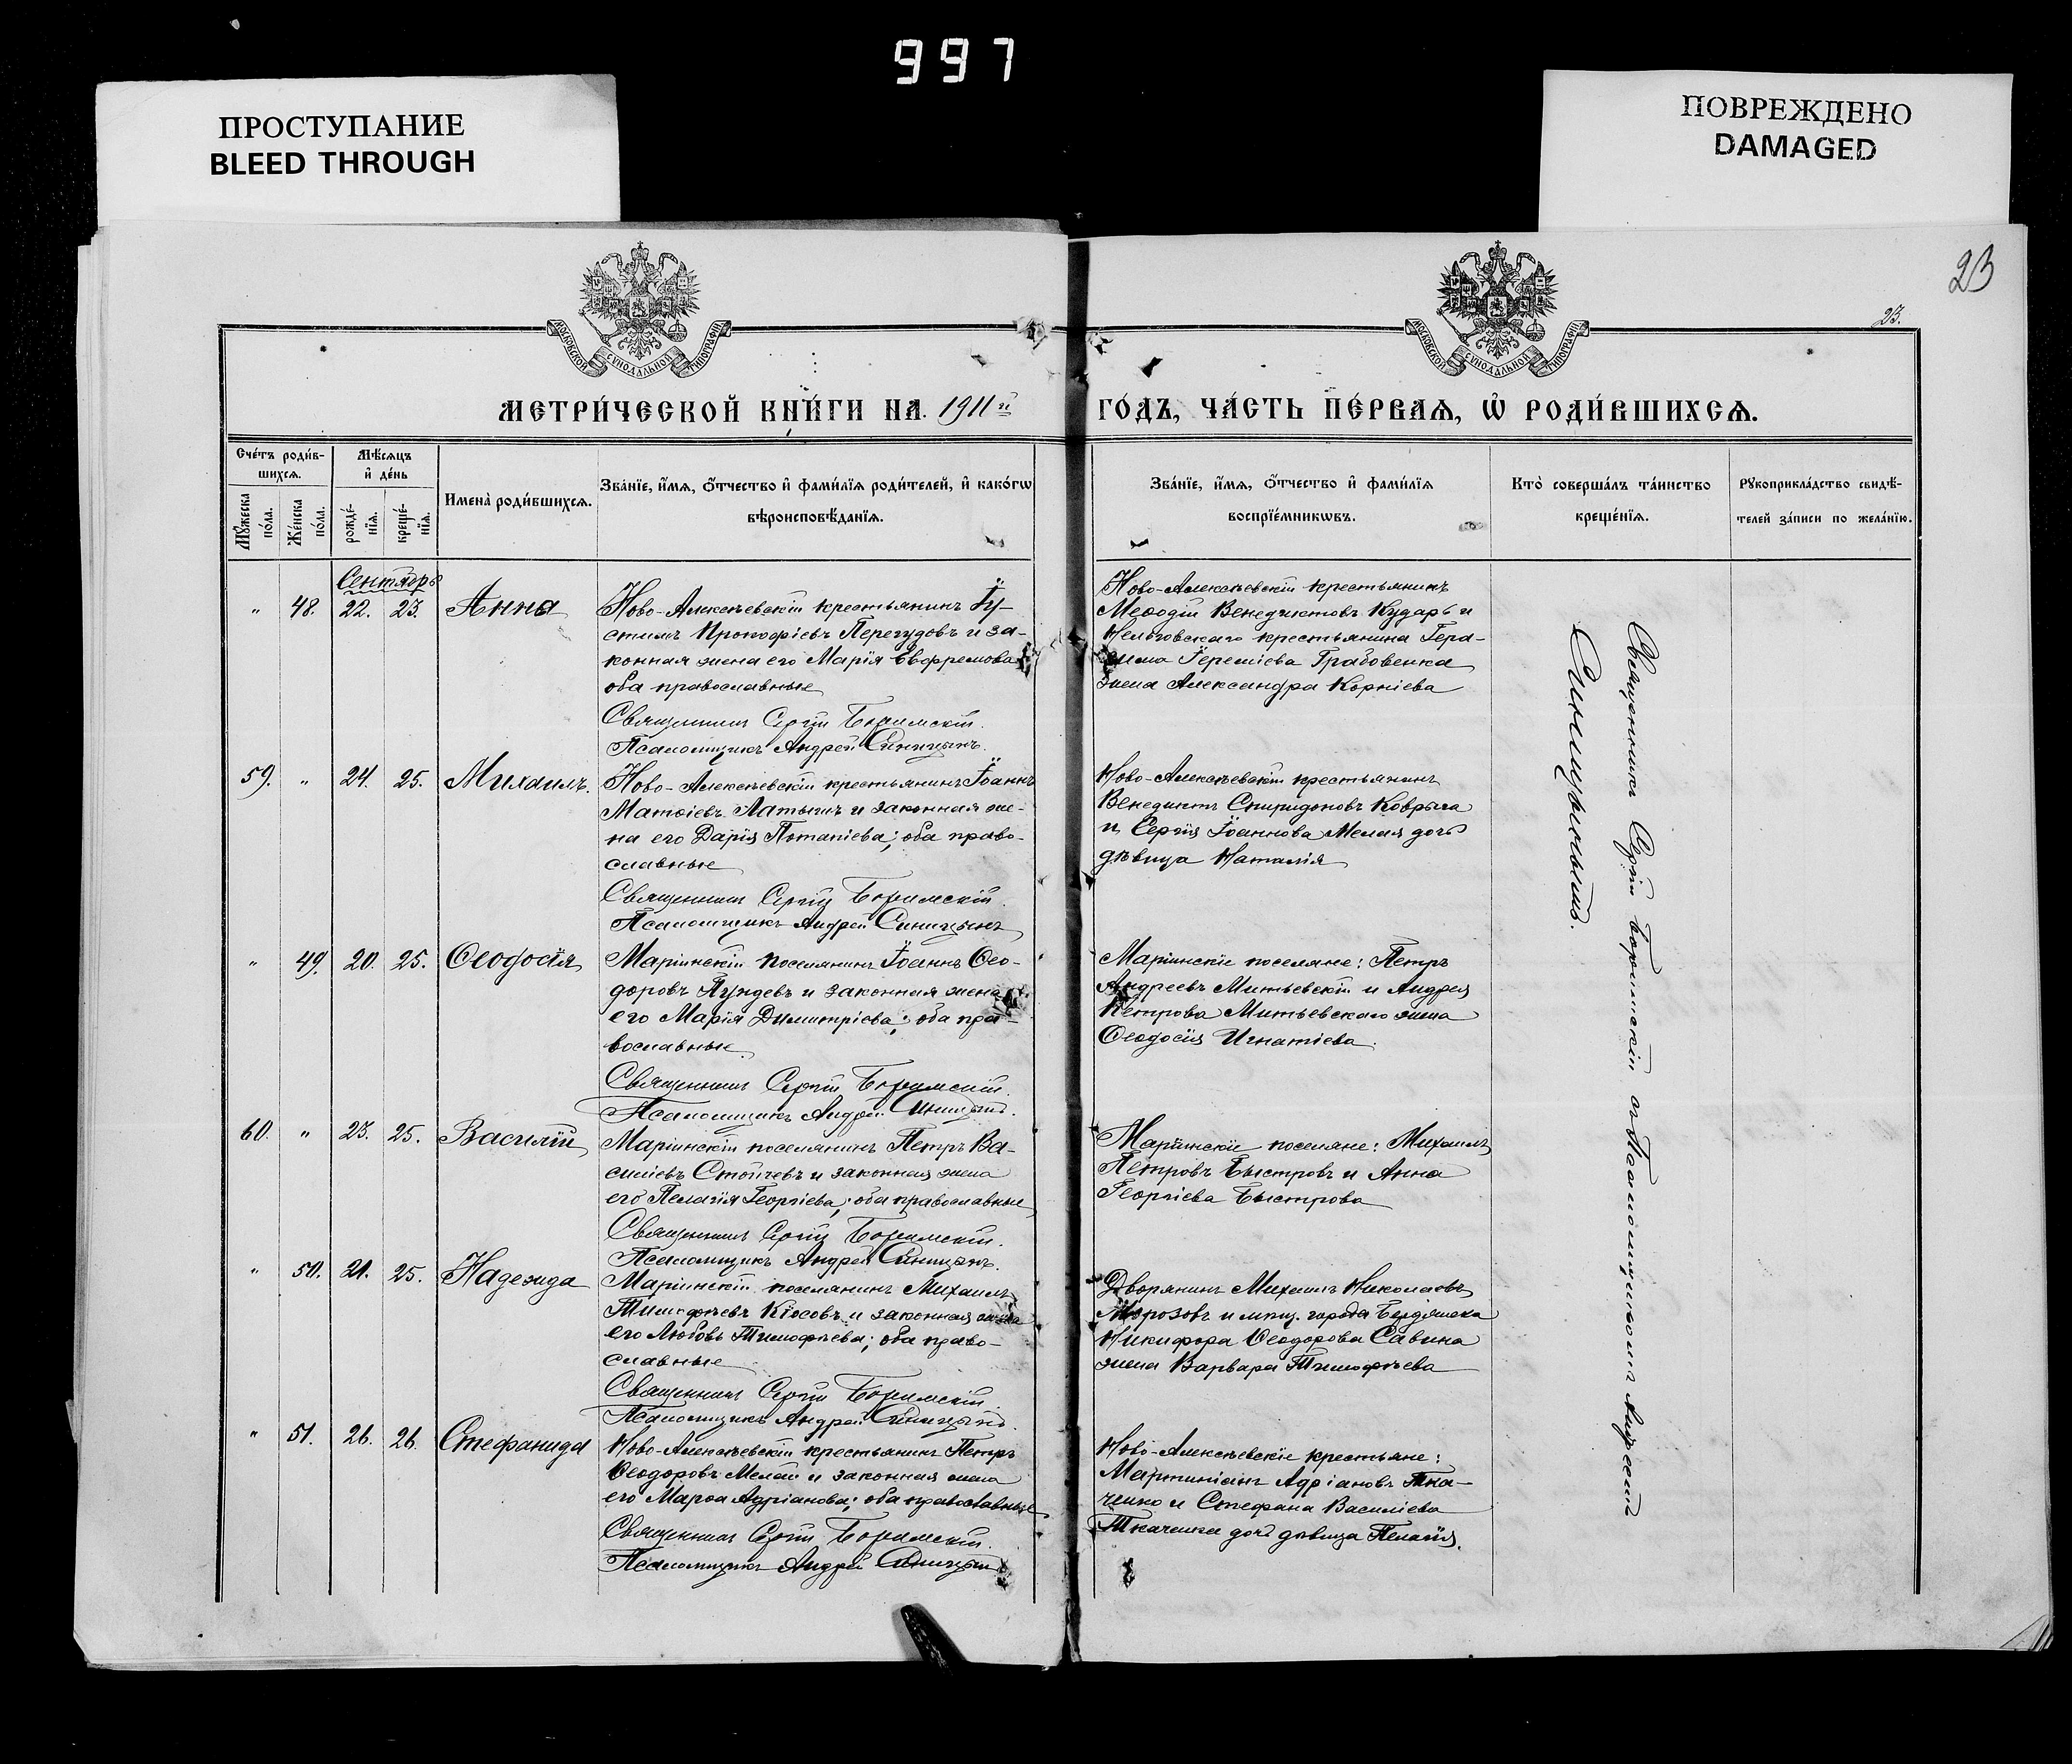 997
ПРОСТУПАНИЕ
BLEED THROUGH
ПОВРЕЖДЕНО
DAMAGED
23
23.
МОСКОВСКОЙ СѴНОДАЛЬНОЙ ТИПОГРАФІИ
МОСКОВСКОЙ СѴНОДАЛЬНОЙ ТИПОГРАФІИ
МЕТРИ́ЧЕСКОЙ КНИ́ГИ НА 1911й ГО́ДЪ, ЧА́СТЬ ПЕ́РВАѦ, Ѡ РОДИ́ВШИХСѦ.
Сче́тъ роди́в-
шихсѧ.
Мꙋ́жеска
по́ла.
Же́нска
по́ла.
Мѣ́сѧцъ
и҆ де́нь
рожде́-
нїѧ.
креще́-
нїѧ.
Имена̀ роди́вшихсѧ.
Зва́нїе, и҆́мѧ, ѻ҆́тчество и҆ фами́лїѧ роди́телей, и҆ како́гѡ
вѣроисповѣ́данїѧ.
Зва́нїе, и҆́мѧ, ѻ҆́тчество и҆ фами́лїѧ
воспрїе́мникѡвъ.
Кто̀ соверша́лъ та́инство
креще́нїѧ.
Рꙋкоприкла́дство свидѣ́-
телей за́писи по жела́нїю.
Сентябрь
" 48. 22. 23. Анна
Ново-Алексѣевскій крестьянинъ Іу-
стинъ Прокофіевъ Перегудовъ и за-
конная жена его Марія Евфремова
оба православные
Священникъ Сергій Боримскій.
Псаломщикъ Андрей Синицынъ.
Ново-Алексѣевскій крестьянинъ
Меѳодій Венедиктовъ Кударь и
крестьянина Гера-
сима Іереміева Грабовенка
жена Александра Корніева
59. " 24. 25. Михаилъ.
Ново-Алексѣевскій крестьянинъ Іоаннъ
Матѳіевъ Латышъ и законная же-
на его Дарія Потапіева; оба право-
славные
Священникъ Сергій Боримскій.
Псаломщикъ Андрей Синицынъ
Ново-Алексѣевскій крестьянинъ
Венедиктъ Спиридоновъ Коврыга
и Сергія Іоаннова Мелая дочь
дѣвица Наталія
" 49. 20. 25. Ѳеодосія
Маріинскій поселянинъ Іоаннъ Ѳео-
доровъ Пундевъ и законная жена
его Марія Димитріева; оба пра-
вославные.
Священникъ Сергій Боримскій.
Псаломщикъ Андрей Синицынъ.
Маріинскіе поселяне: Петръ
Андреевъ Митьевскій и Андрея
Петрова Митьевскаго жена
Ѳеодосія Игнатіева.
60. " 23. 25. Василій
Маріинскій поселянинъ Петръ Ва-
силіевъ Стойчевъ и законная жена
его Пелагія Георгіева; оба православные
Священникъ Сергій Боримскій.
Псаломщикъ Андрей Синицынъ.
Маріинскіе поселяне: Михаилъ
Петровъ Быстровъ и Анна
Георгіева Быстрова
" 50. 21. 25. Надежда
Маріинскій поселянинъ Михаилъ
Тимофѣевъ Кіосовъ и законная жена
его Любовь Тимофѣева; оба право-
славные
Священникъ Сергій Боримскій.
Псаломщикъ Андрей Синицынъ.
Дворянинъ Михаилъ Николаевъ
Морозовъ и мѣщ. города Бердянска
Никифора Ѳеодорова Савина
жена Варвара Тимофѣева
" 51. 26. 26. Стефанида
Ново-Алексѣевскій крестьянинъ Петръ
Ѳеодоровъ Мелай и законная жена
его Марѳа Адріанова; оба православные
Священникъ Сергій Боримскій.
Псаломщикъ Андрей Синицынъ
Ново-Алексѣевскіе крестьяне:
Мартиніанъ Адріановъ Тка-
ченко и Стефана Василіева
Ткаченка дочь дѣвица Пелагія.
Священникъ Сергій Боримскій съ Псаломщикомъ Андреемъ
Синицынымъ.